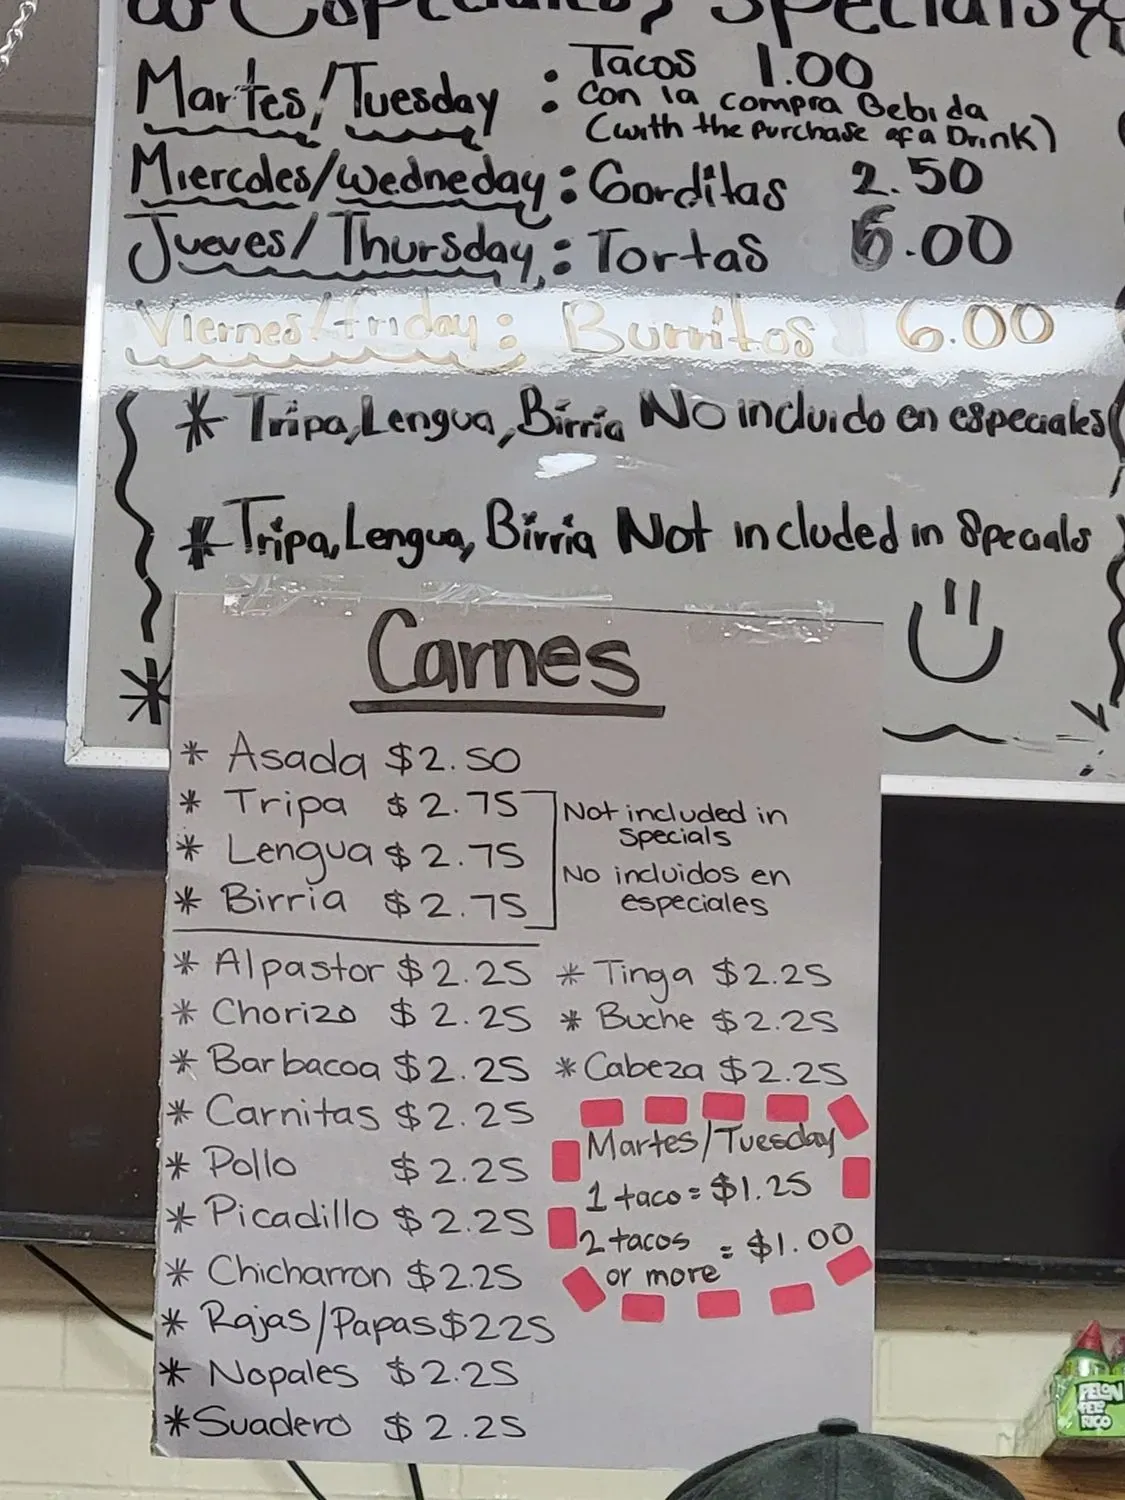 Especiales, Specials
Martes/Tuesday : Tacos 1.00
Con la compra Bebida
(with the Purchase of a Drink)
Miercoles/wedneday : Gorditas 2.50
Jueves/Thursday : Tortas 6.00
Viernes/friday : Burritos 6.00
* Tripa, Lengua, Birria NO incluido en especiales
* Tripa, Lengua, Birria Not included in Specials
Carnes
* Asada $2.50
* Tripa $2.75
* Lengua $2.75
* Birria $2.75
Not included in
Specials
No incluidos en
especiales
* Alpastor $2.25
* Chorizo $2.25
* Barbacoa $2.25
* Carnitas $2.25
* Pollo $2.25
* Picadillo $2.25
* Chicharron $2.25
* Rajas/Papas $225
* Nopales $2.25
* Suadero $2.25
* Tinga $2.25
* Buche $2.25
* Cabeza $2.25
Martes/Tuesday
1 taco = $1.25
2 tacos = $1.00
or more
PELON
PELO
RICO